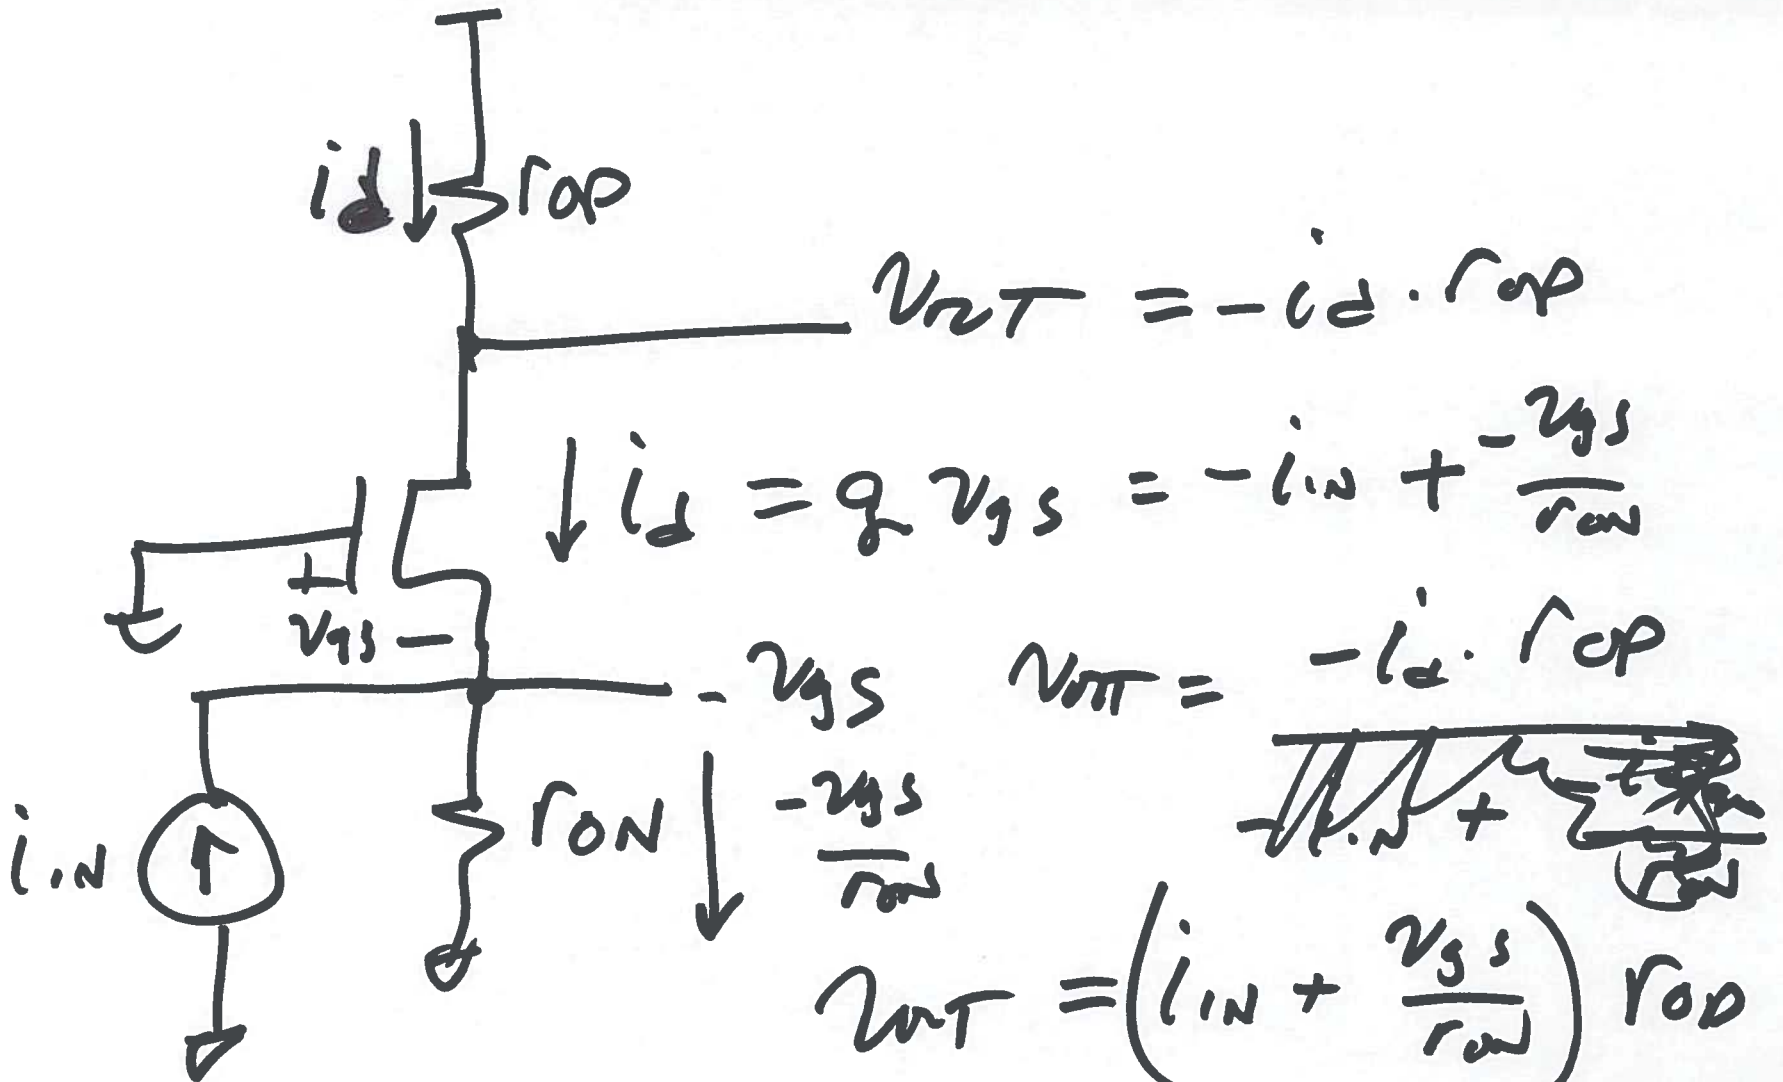 id ↓ rop
vout = -id · rop
↓ id = g vgs = -iIN + -vgs/roN
+
vgs -
- vgs
vout = -id · rop
iIN ↑
roN ↓ -vgs/roN
vout = (iIN + vgs/roN) rop